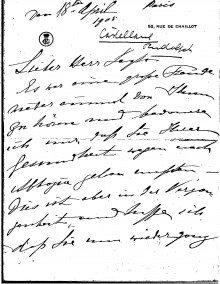 den 18ten April Paris
1908
50, RUE DE CHAILLOT
Lieber Herr
Es war eine große Freude
wieder einmal von Ihnen
zu hören und bedaure
ich nur, daß Sie Ihrer
Gesundheit wegen nach
Abbazia gehen mußten –
Dies ist aber in der
und hoffe ich
daß Sie nun wieder ganz